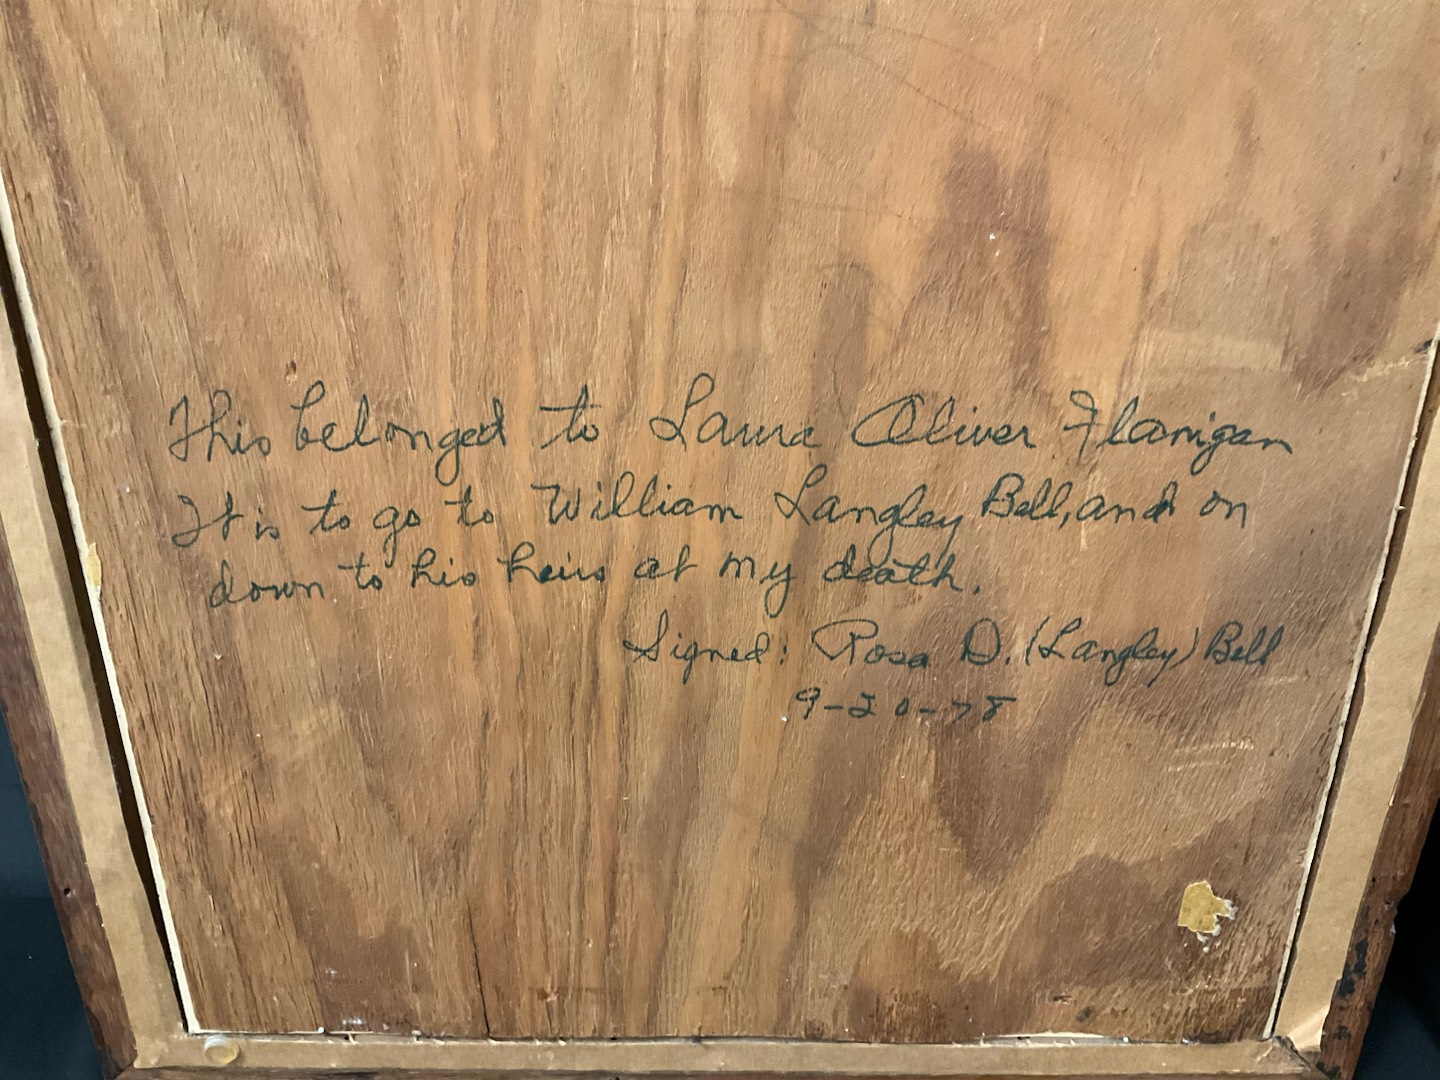 This belonged to Laura Oliver Flanigan
It is to go to William Langley Bell, and on
down to his heirs at my death.
Signed: Rosa D. (Langley) Bell
9-20-78